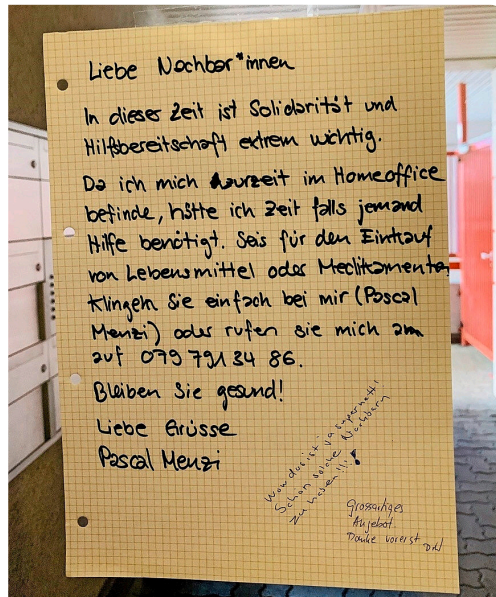 Liebe Nachbar*innen
In dieser Zeit ist Solidarität und
Hilfsbereitschaft extrem wichtig.
Da ich mich kurzeit im Homeoffice
befinde, hätte ich Zeit falls jemand
Hilfe benötigt. Seis für den Einkauf
von Lebensmittel oder Medikamenten
Klingeln Sie einfach bei mir (Pascal
Menzi) oder rufen sie mich am
auf 079 791 34 86.
Bleiben Sie gesund!
Liebe Grüsse
Pascal Menzi
Wow das ist ja supernett!
Schön solche Nachbarn
zu haben!!!
Grossartiges
Angebot.
Danke vorerst